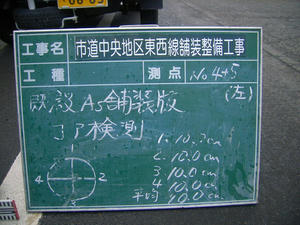 工事名 市道中央地区東西線舗装整備工事
工種 測点 No 4+5
(左)
既設 As舗装版
コア検測
1. 10.2cm
2. 10.0cm
3 10.0cm
4 10.0cm
平均 10.0cm
1
4 2
3